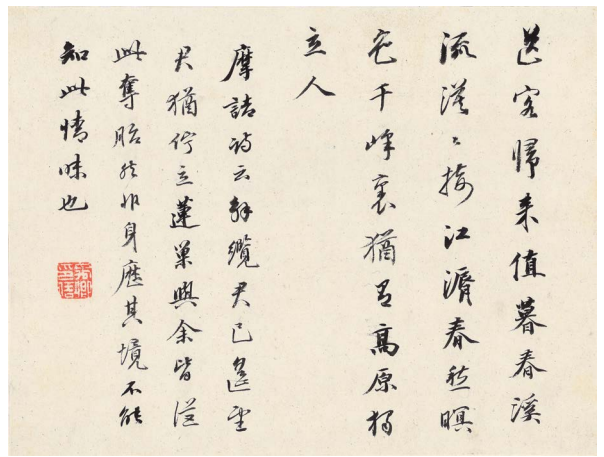 送客歸来值暮春溪
流漠〻接江漘春愁暝
色千峰裏猶高原獨
立人
摩詰詩云解纜君已遙望
君猶佇立蓮巢與余皆從
此奪胎然非身歷其境不能
知此情味也